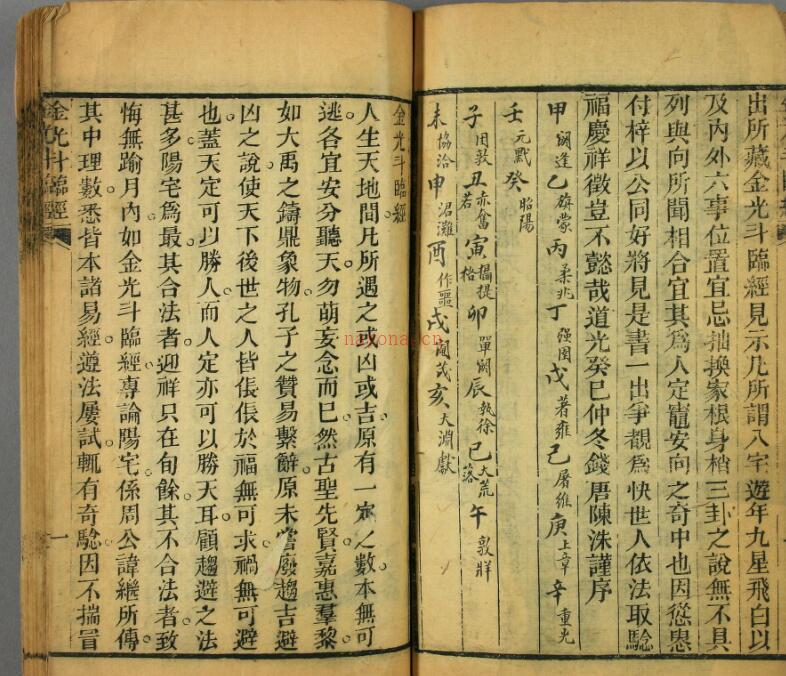 出所藏金光斗臨經見示凡所謂八宅遊年九星飛白以
及內外六事位置宜忌拙換家根身楷三卦之說無不具
列與向所聞相合宜其為人定竈安向之奇中也因慫恿
付梓以公同好將見是書一出爭覩為快世人依法取騐
福慶祥徵豈不懿哉道光癸巳仲冬錢唐陳洙謹序
甲 閼逢 乙 旃蒙 丙 柔兆 丁 强圉 戊 著雍 己 屠維 庚 上章 辛 重光
壬 元黓 癸 昭陽
子 困敦 丑 赤奮若 寅 攝提格 卯 單閼 辰 執徐 巳 大荒落 午 敦牂
未 協洽 申 涒灘 酉 作噩 戌 閹茂 亥 大淵獻
金光斗臨經
人生天地間凡所遇之或凶或吉原有一定之數本無可
逃各宜安分聽天勿萌妄念而已然古聖先賢嘉惠羣黎
如大禹之鑄鼎象物孔子之贊易繫辭原未嘗廢趨吉避
凶之說使天下後世之人皆倀倀於福無可求禍無可避
也蓋天定可以勝人而人定亦可以勝天耳顧趨避之法
甚多陽宅為最其合法者迎祥只在旬餘其不合法者致
悔無踰月內如金光斗臨經專論陽宅係周公諱繼所傳
其中理數悉皆本諸易經遵法屢試輒有奇騐因不揣冒
金光斗臨經
一
nayona.cn